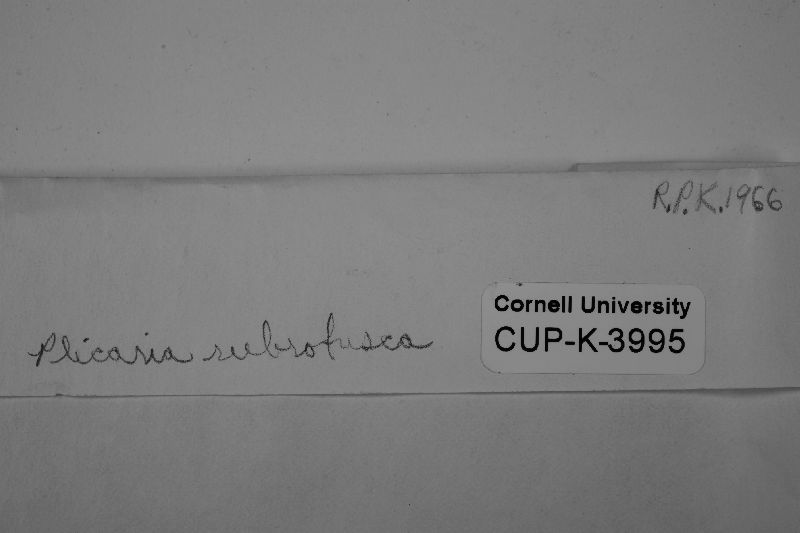 R.P.K. 1966
Cornell University
CUP-K-3995
Plicaria rubrofusca